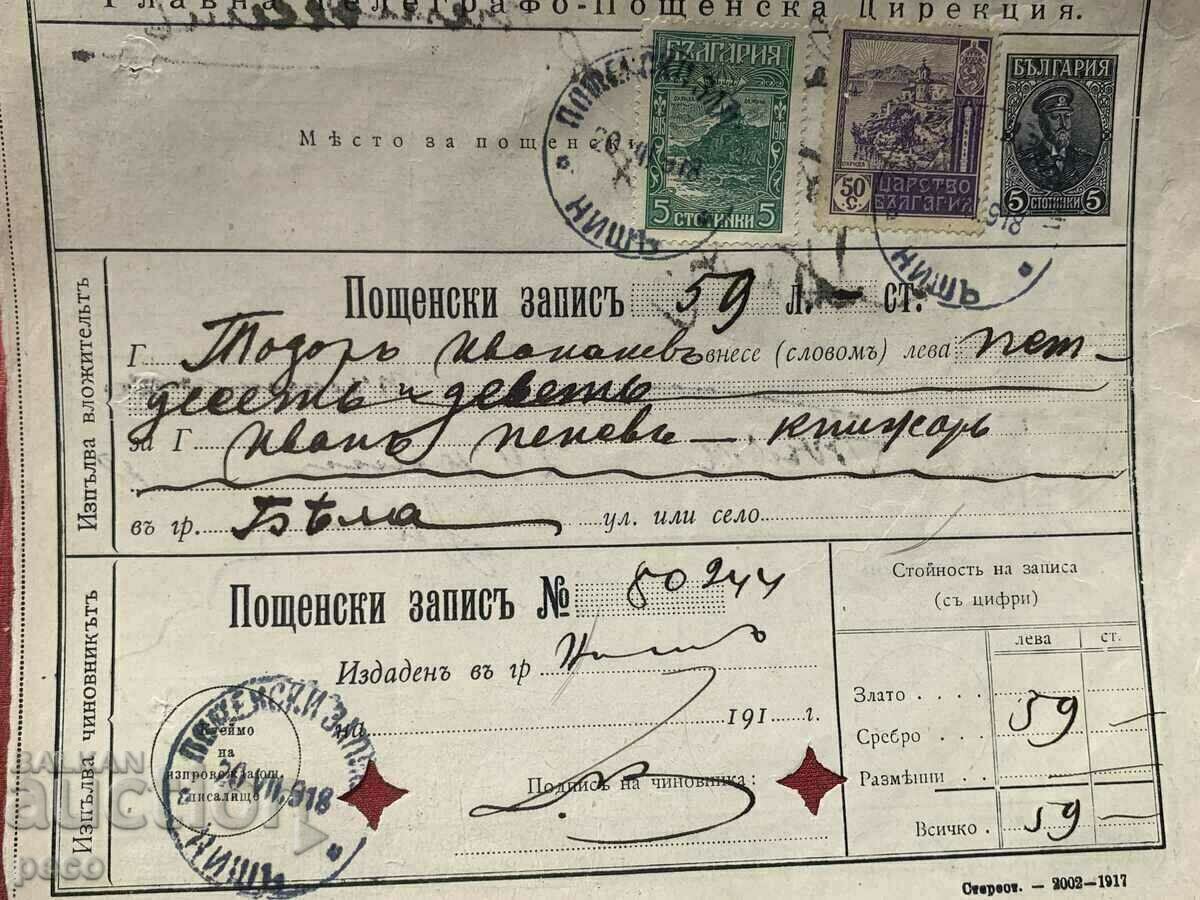 Главна Телеграфо-Пощенска Дирекция.
Мѣсто за пощенски
БЪЛГАРИЯ
1916 1916
5 СТОТИНКИ 5
50 С.
ЦАРСТВО
БЪЛГАРИЯ
БЪЛГАРИЯ
5 СТОТИНКИ 5
ПОЩЕНСКИ ЗАП
20 VII 918
НИШЪ
918
НИШЪ
Изпълва вложительтъ
Пощенски записъ 59 Л. — СТ.
Г Тодоръ внесе (словомъ) лева пет-
десеть и деветь
за Г Иванъ Пеневъ — книжарь
въ гр. Бѣла ул. или село
Изпълва чиновникътъ
Пощенски записъ № 80244
Издаденъ въ гр Нишъ
на 191 г.
Подпис на чиновника:
Клеймо
на
изпровождащ.
писалище
ПОЩЕНСКИ ЗАПИС
20 VII 918
НИШЪ
Стойность на записа
(съ цифри)
лева ст.
Злато
Сребро 59 —
Размѣнни
Всичко 59 —
BALKAN
auction
peco
Стереот. — 2002-1917